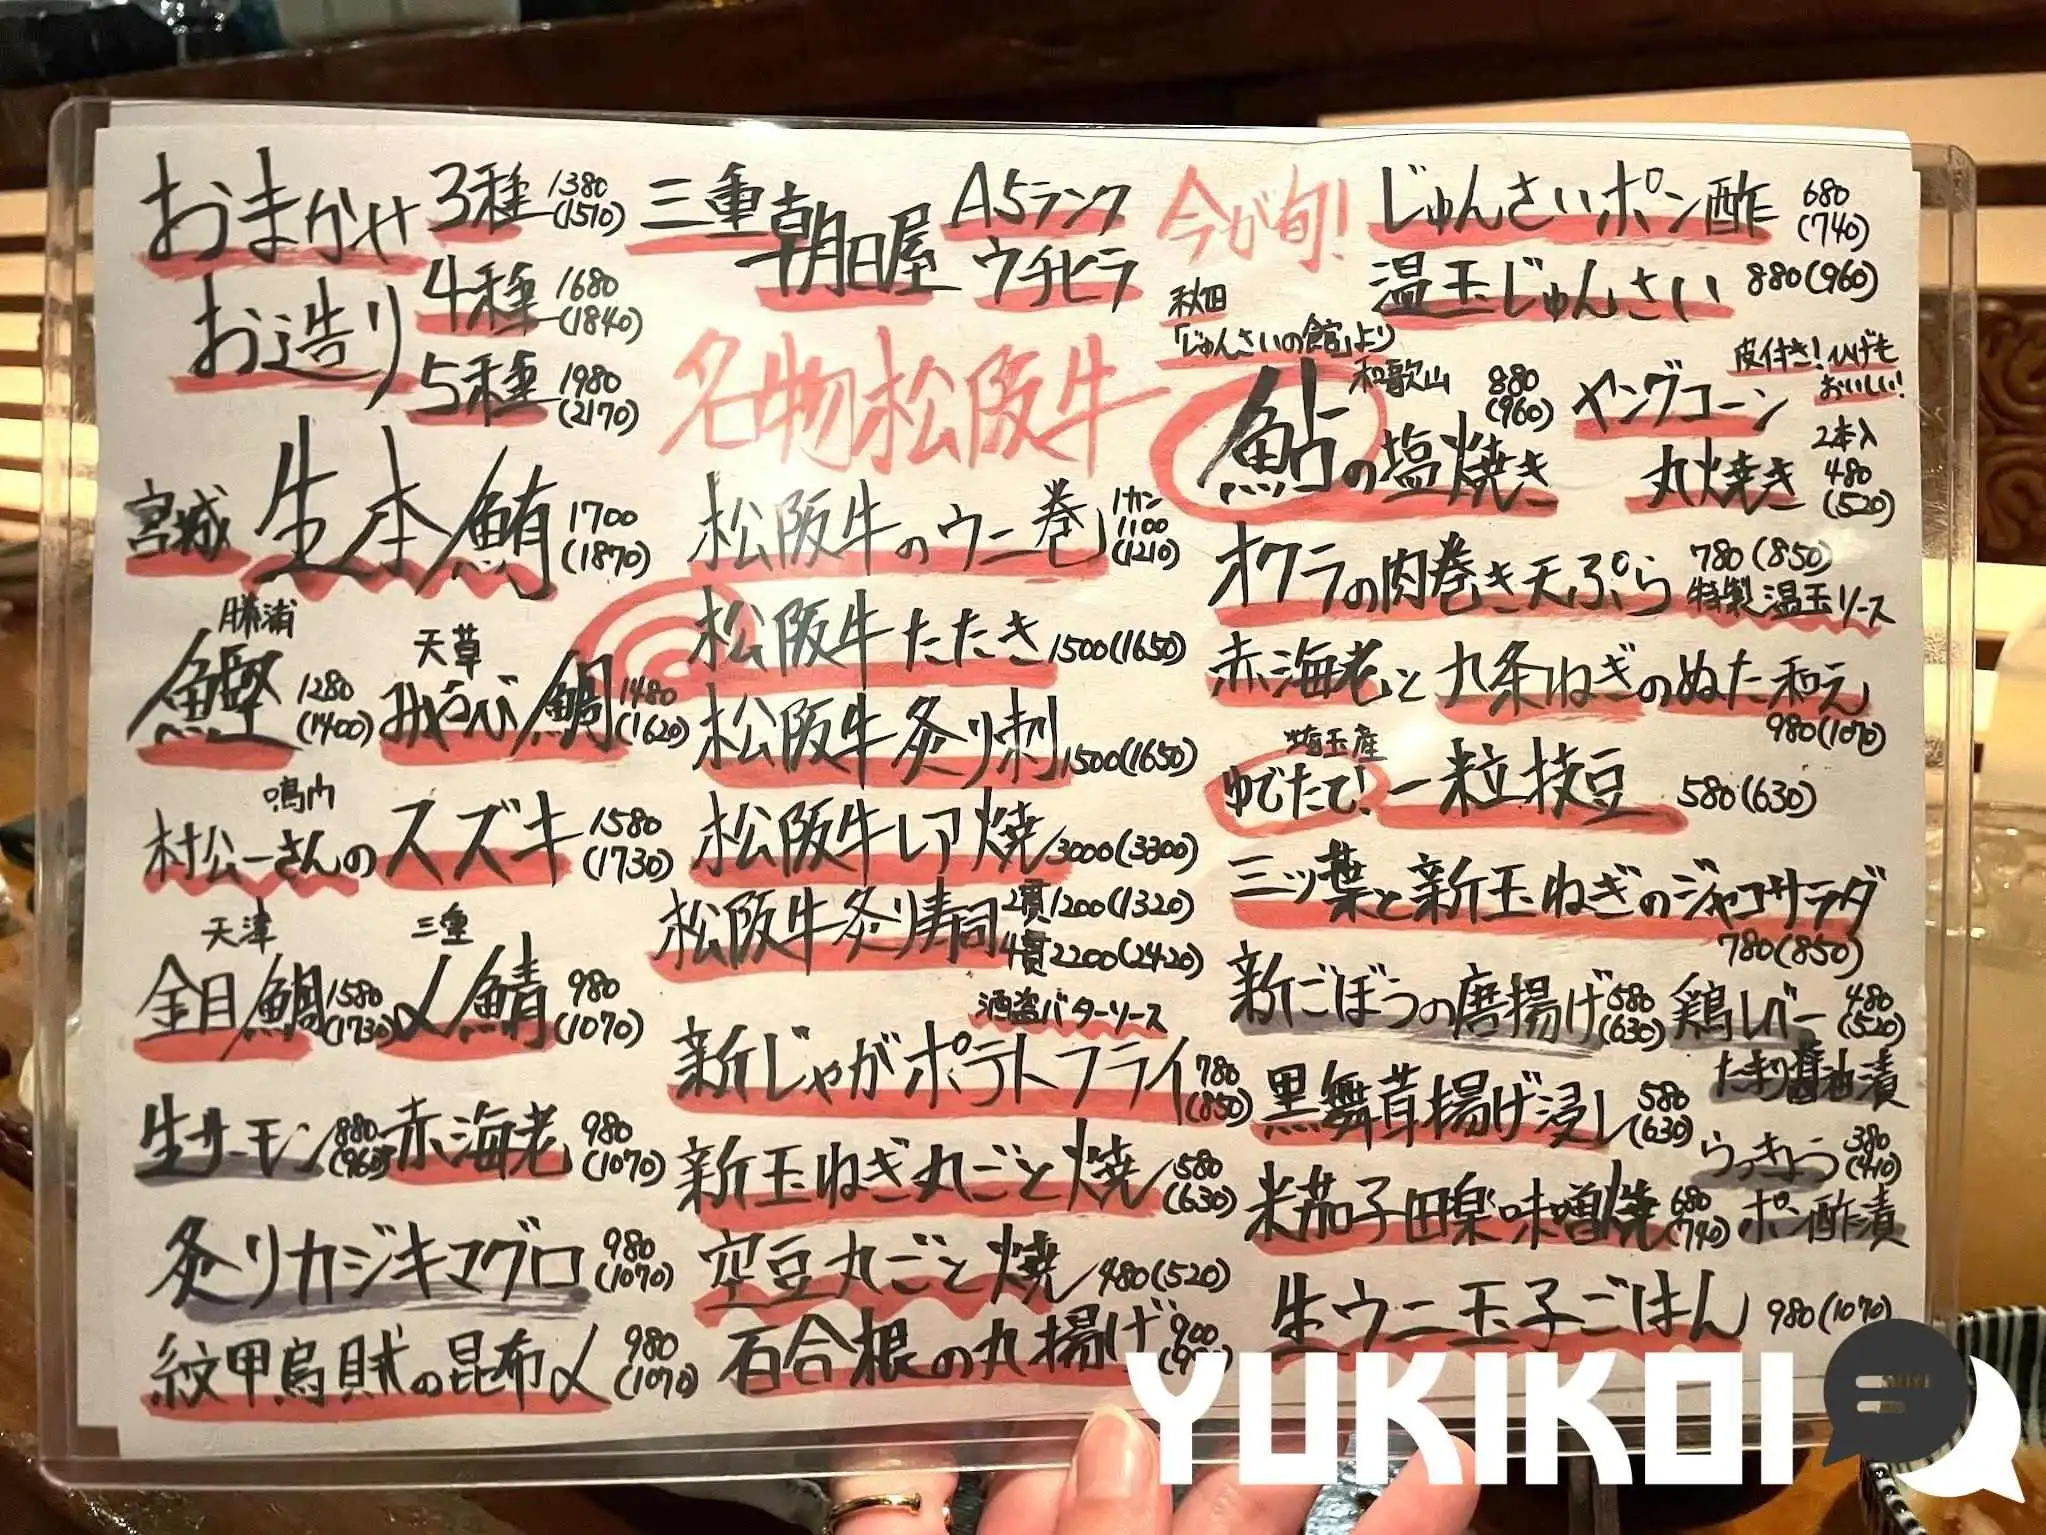 おまかせ
お造り
3種 1380 (1510)
4種 1680 (1840)
5種 1980 (2170)
宮城 生本鮪 1700 (1870)
勝浦
鰹 1280 (1400)
天草
みやび鯛 1480 (1620)
鳴門
村公一さんのスズキ 1580 (1730)
天津
金目鯛 1580 (1730)
三重
〆鯖 980 (1070)
生サーモン 880 (960)
赤海老 980 (1070)
炙りカジキマグロ 980 (1070)
紋甲烏賊の昆布〆 980 (1070)
三重 朝日屋
A5ランク
ウチヒラ
名物松阪牛
松阪牛のウニ巻 1カン 1100 (1210)
松阪牛たたき 1500 (1650)
松阪牛炙り刺 1500 (1650)
松阪牛レア焼 3000 (3300)
松阪牛炙り寿司 2貫 1200 (1320)
4貫 2200 (2420)
酒盗バターソース
新じゃがポテトフライ 780 (850)
新玉ねぎ丸ごと焼 580 (630)
空豆丸ごと焼 480 (520)
百合根の丸揚げ 900
今が旬!
秋田
「じゅんさいの館」より
じゅんさいポン酢 680 (740)
温玉じゅんさい 880 (960)
和歌山
鮎の塩焼き 880 (960)
皮付き!ひげも
おいしい!
ヤングコーン
丸焼き 2本入 480 (520)
オクラの肉巻き天ぷら 780 (850)
特製温玉ソース
赤海老と九条ねぎのぬた和え
980 (1070)
埼玉産
ゆでたて!一粒枝豆 580 (630)
三ッ葉と新玉ねぎのジャコサラダ
780 (850)
新ごぼうの唐揚げ 580 (630)
鶏レバー 480 (520)
たまり醤油漬
黒舞茸揚げ浸し 580 (630)
らっきょう 380 (410)
ポン酢漬
米茄子田楽味噌焼 680 (740)
生ウニ玉子ごはん 980 (1070)
YUKIKOI